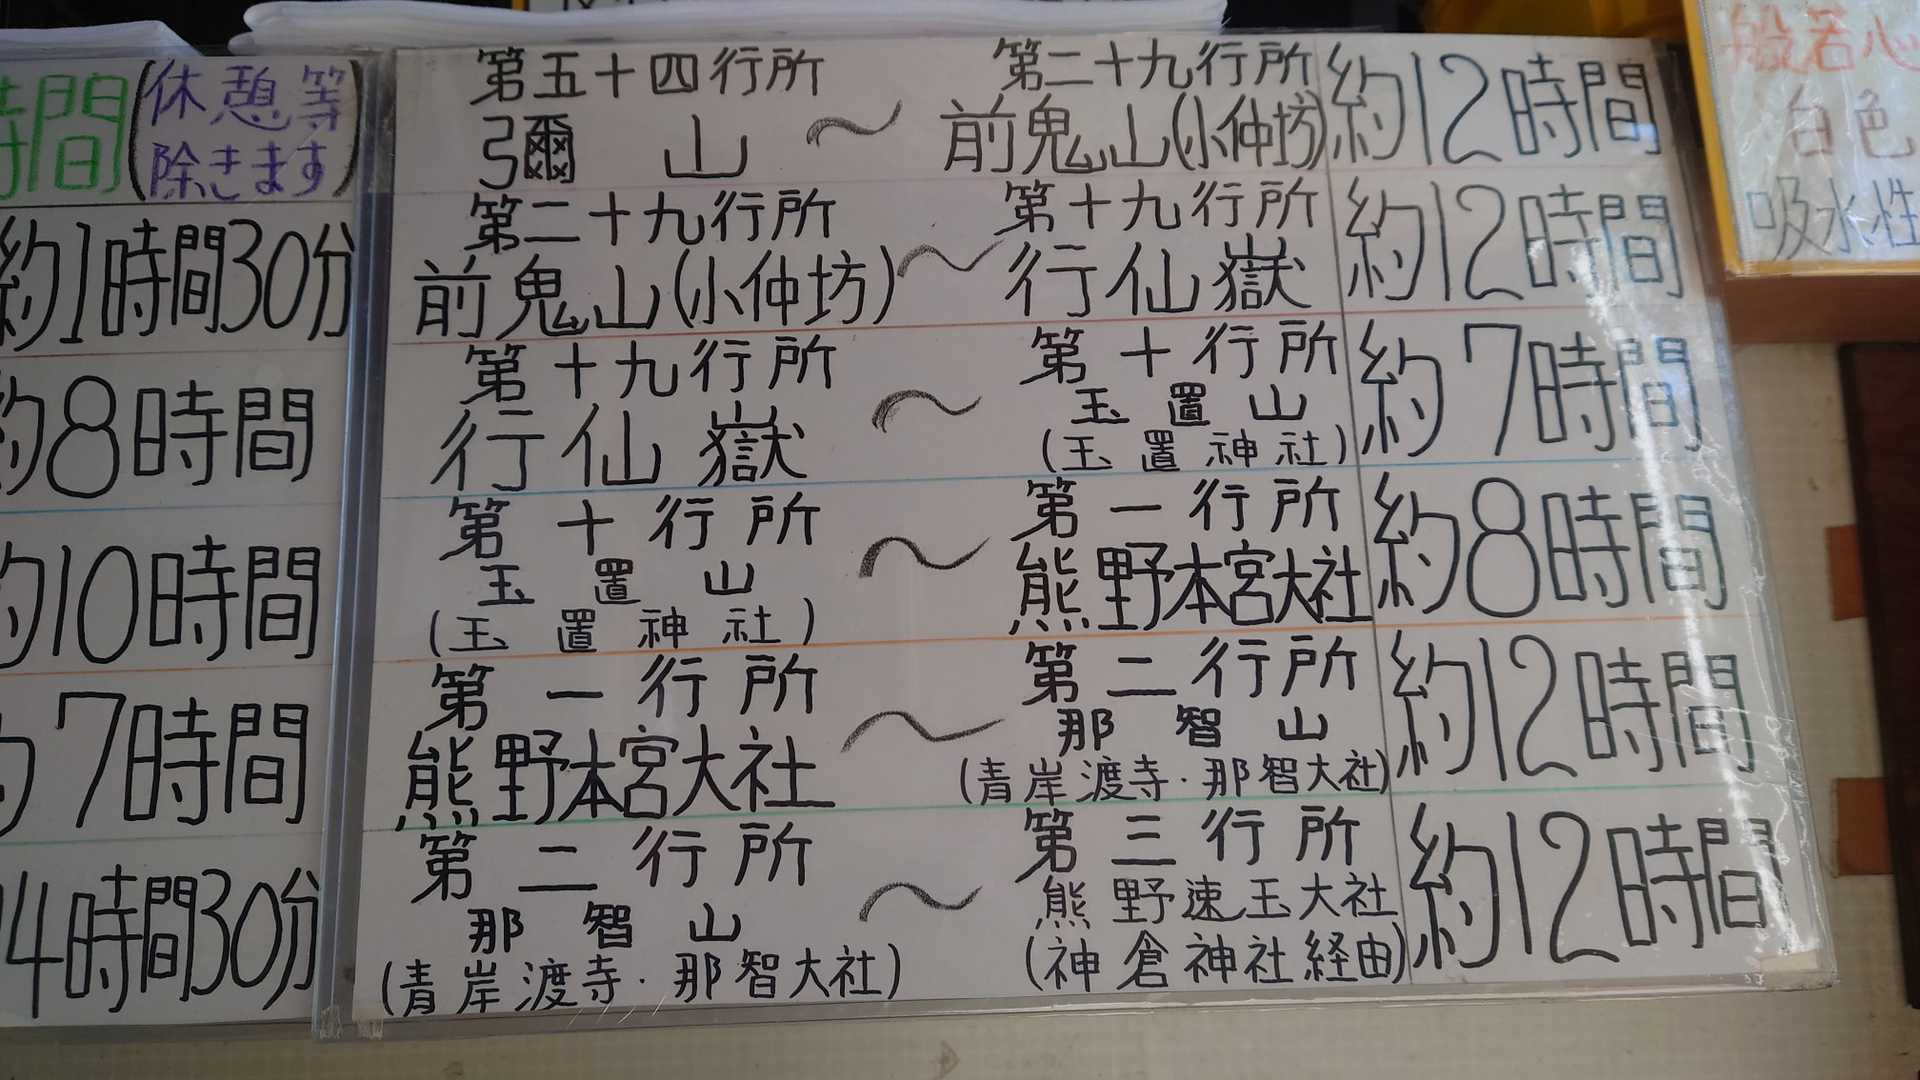 時間(休憩等
除きます)
約1時間30分
約8時間
約10時間
約7時間
4時間30分
第五十四行所 第二十九行所
彌山 〜 前鬼山(小仲坊) 約12時間
第二十九行所 第十九行所
前鬼山(小仲坊) 〜 行仙嶽 約12時間
第十九行所 第十行所
行仙嶽 〜 玉置山 約7時間
(玉置神社)
第十行所 第一行所
玉置山 〜 熊野本宮大社 約8時間
(玉置神社)
第一行所 第二行所
熊野本宮大社 〜 那智山 約12時間
(青岸渡寺·那智大社)
第二行所 第三行所
那智山 〜 熊野速玉大社 約12時間
(青岸渡寺·那智大社) (神倉神社経由)
般若心
白色
吸水性